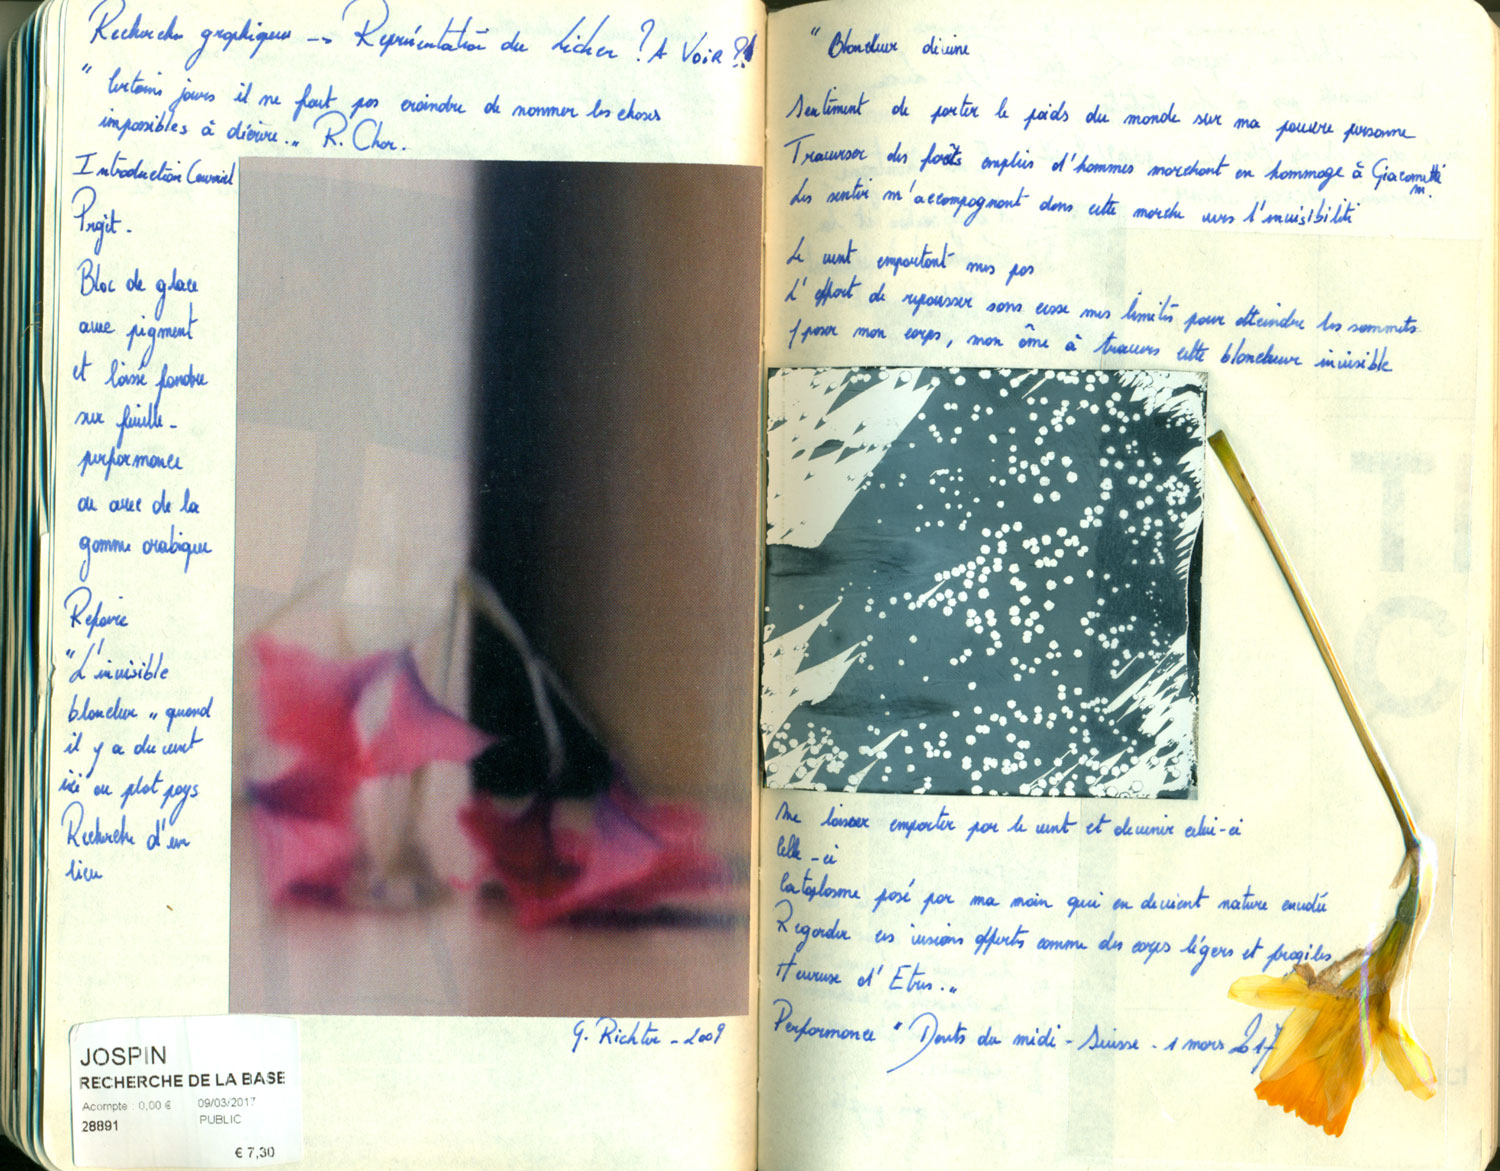 Recherche graphiques → Représentation du Lichen ? A VOIR ?!
"Certains jours il ne faut pas craindre de nommer les choses
impossibles à décrire" R. Char.
Introduction Courriel
Projet -
Bloc de glace
avec pigment
et laissé fondre
sur feuille -
performance
ou avec de la
gomme arabique
Refaire
"L'invisible
blancheur" quand
il y a du vent
ici au plat pays
Recherche d'un
lieu
G. Richter - 2009
JOSPIN
RECHERCHE DE LA BASE
Acompte : 0,00 € 09/03/2017
28891 PUBLIC
€ 7,30
"Blancheur divine
Sentiment de porter le poids du monde sur ma pauvre personne
Traverser des forêts emplies d'hommes marchant en hommage à Giacometti
Les sentir m'accompagnant dans cette marche vers l'invisibilité
Le vent emportant mes pas
L'effort de repousser sans cesse mes limites pour atteindre les sommets
/poser mon corps, mon âme à travers cette blancheur invisible
Me laisser emporter par le vent et devenir celui-ci
Celle-ci
Cataplasme posé par ma main qui en devient nature
Regarder ces visions offertes comme des corps légers et fragiles
Heureuse d'Etres."
Performance "Dents du midi - Suisse - 1 mars 2017